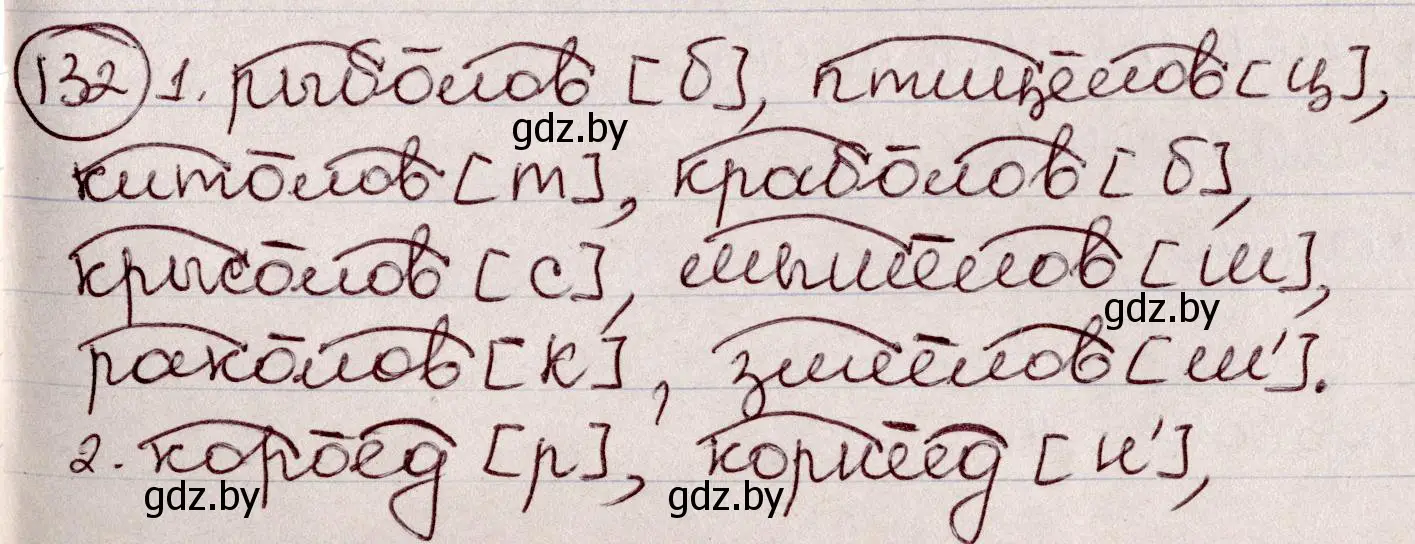 132 1. рыболов [б], птицелов [ц],
gdz.by
китолов [т], краболов [б],
крысолов [с], мышелов [ш],
gdz.by
раколов [к], змеелов [м'].
2. короед [р], корнеед [н'],
gdz.by gdz.by